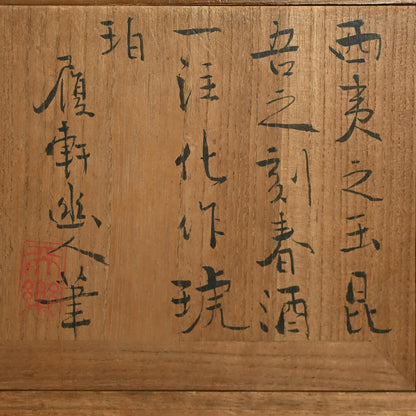 西夷之玉昆
吾之刻春酒
一注化作琥
珀
履軒幽人筆